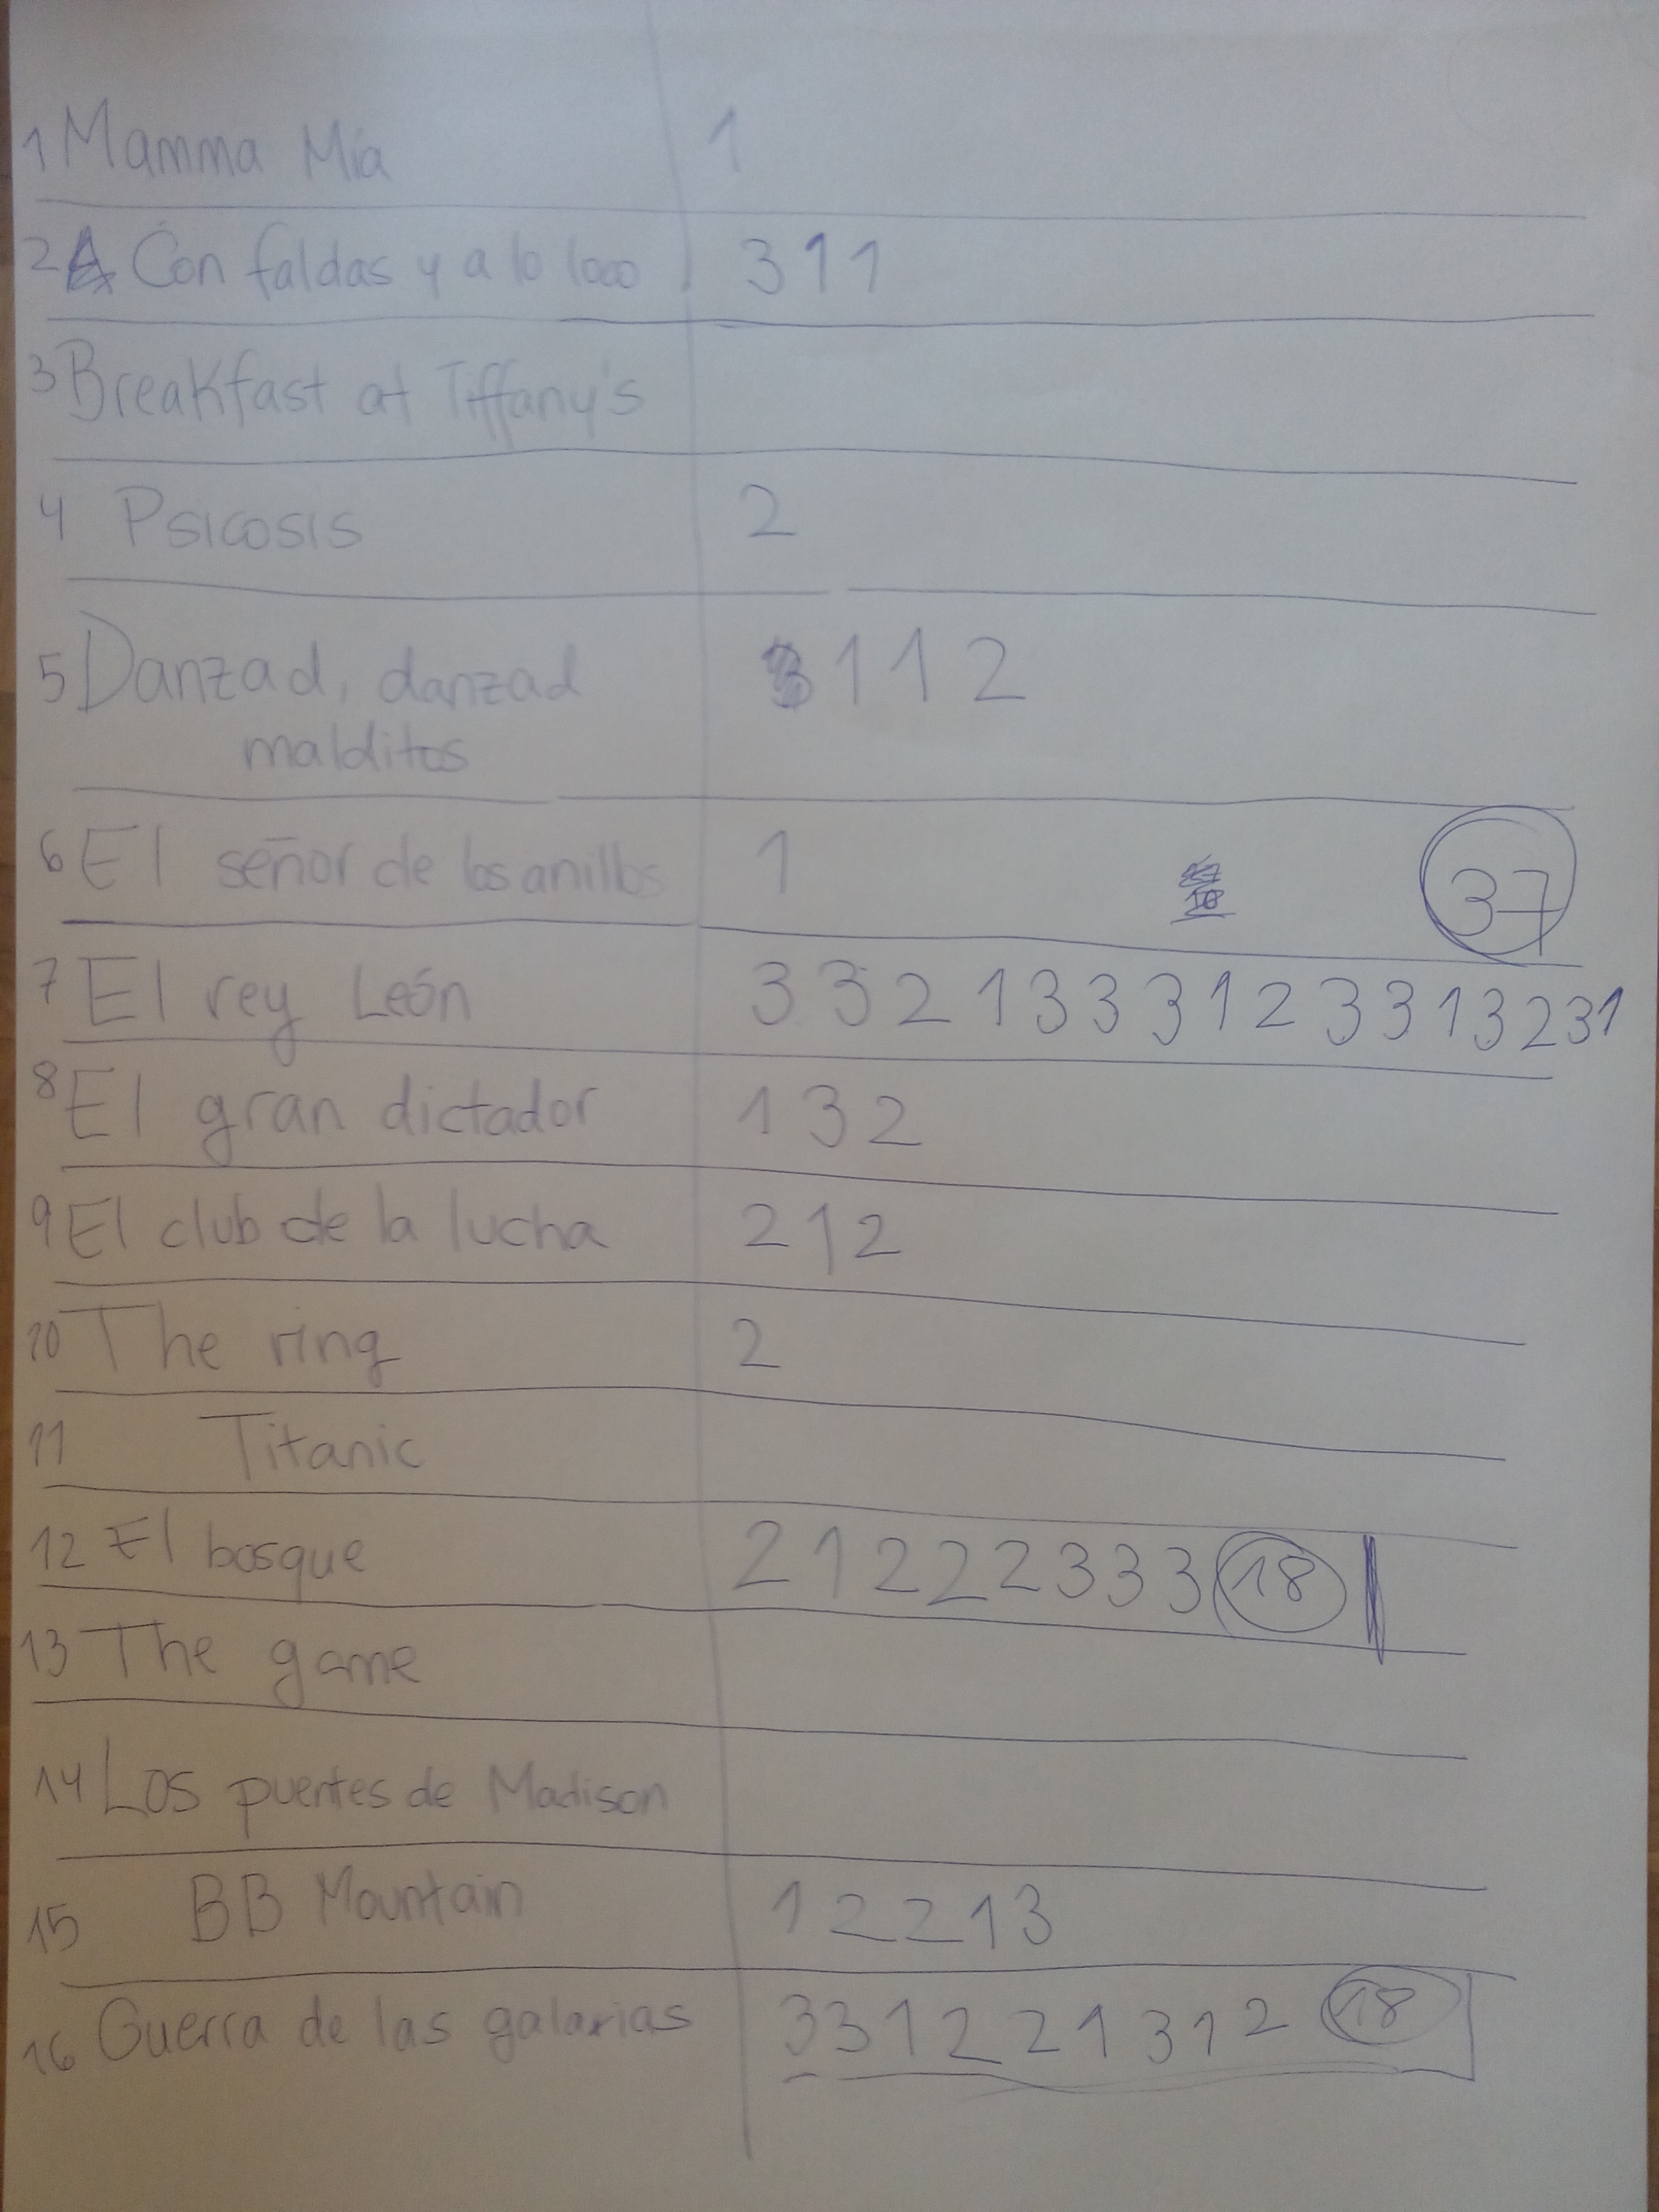 1 Mamma Mía 1
2 Con faldas y a lo loco 3 1 1
3 Breakfast at Tiffany's
4 Psicosis 2
5 Danzad, danzad 1 1 2
malditos
6 El señor de los anillos 1 37
7 El rey León 3 3 2 1 3 3 3 1 2 3 3 1 3 2 3 1
8 El gran dictador 1 3 2
9 El club de la lucha 2 1 2
10 The ring 2
11 Titanic
12 El bosque 2 1 2 2 2 3 3 3 18
13 The game
14 Los puentes de Madison
15 BB Mountain 1 2 2 1 3
16 Guerra de las galaxias 3 3 1 2 2 1 3 1 2 18